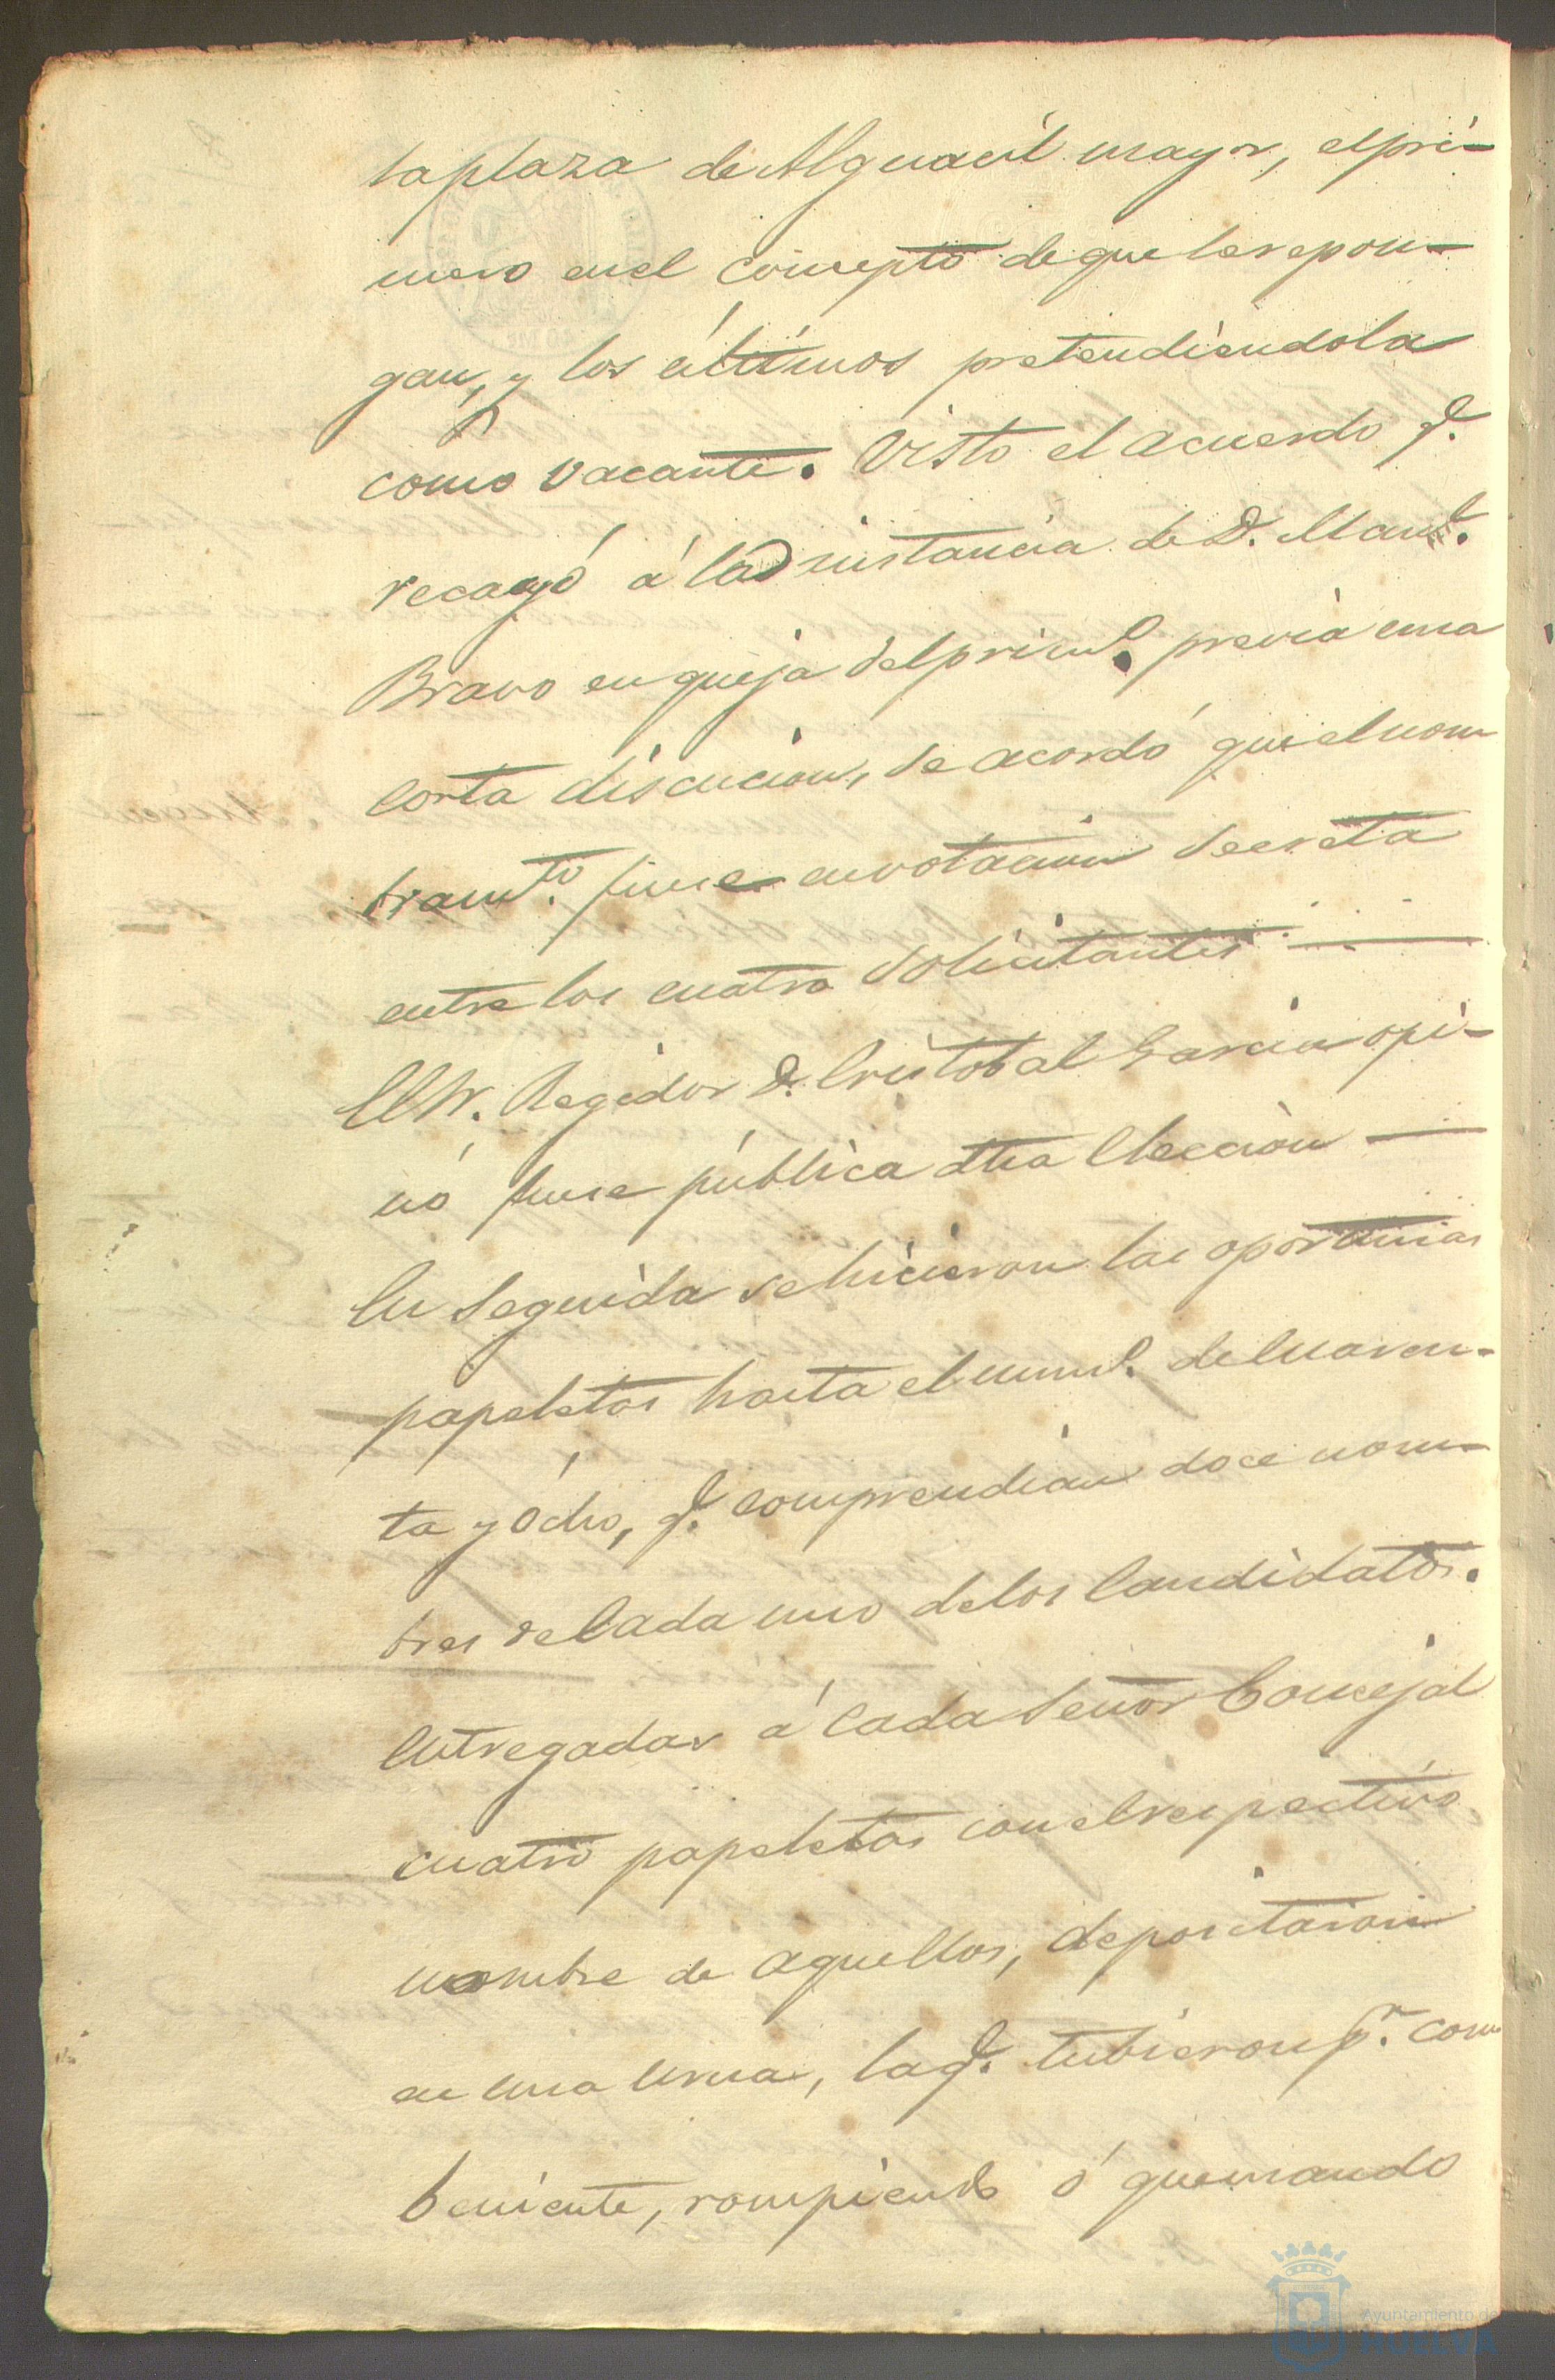 la plaza de Alguacil mayor, el pri-
mero en el concepto de que la repon-
gan, y los últimos pretendiendola
como vacante. Visto el acuerdo q.e
recayó á la instancia de D. Man.l
Bravo en queja del prim.o previa una
corta discucion, se acordó que el nom
bram.to fuese en votacion secreta
entre los cuatro solicitantes
El Sr. Regidor D. Cristobal Garcia opi-
nó fuese pública dha eleccion
En seguida se hicieron las oportunas
papeletas hasta el num.o de cuaren-
ta y ocho, q.e comprendian doce nom-
bres de cada uno de los Candidatos.
Entregadas á cada Señor Concejal
cuatro papeletas con el respectivo
nombre de aquellos, depositaron
en una urna, la q.e tubieron p.r com
beniente, rompiendo ó quemando
Ayuntamiento de
HUELVA